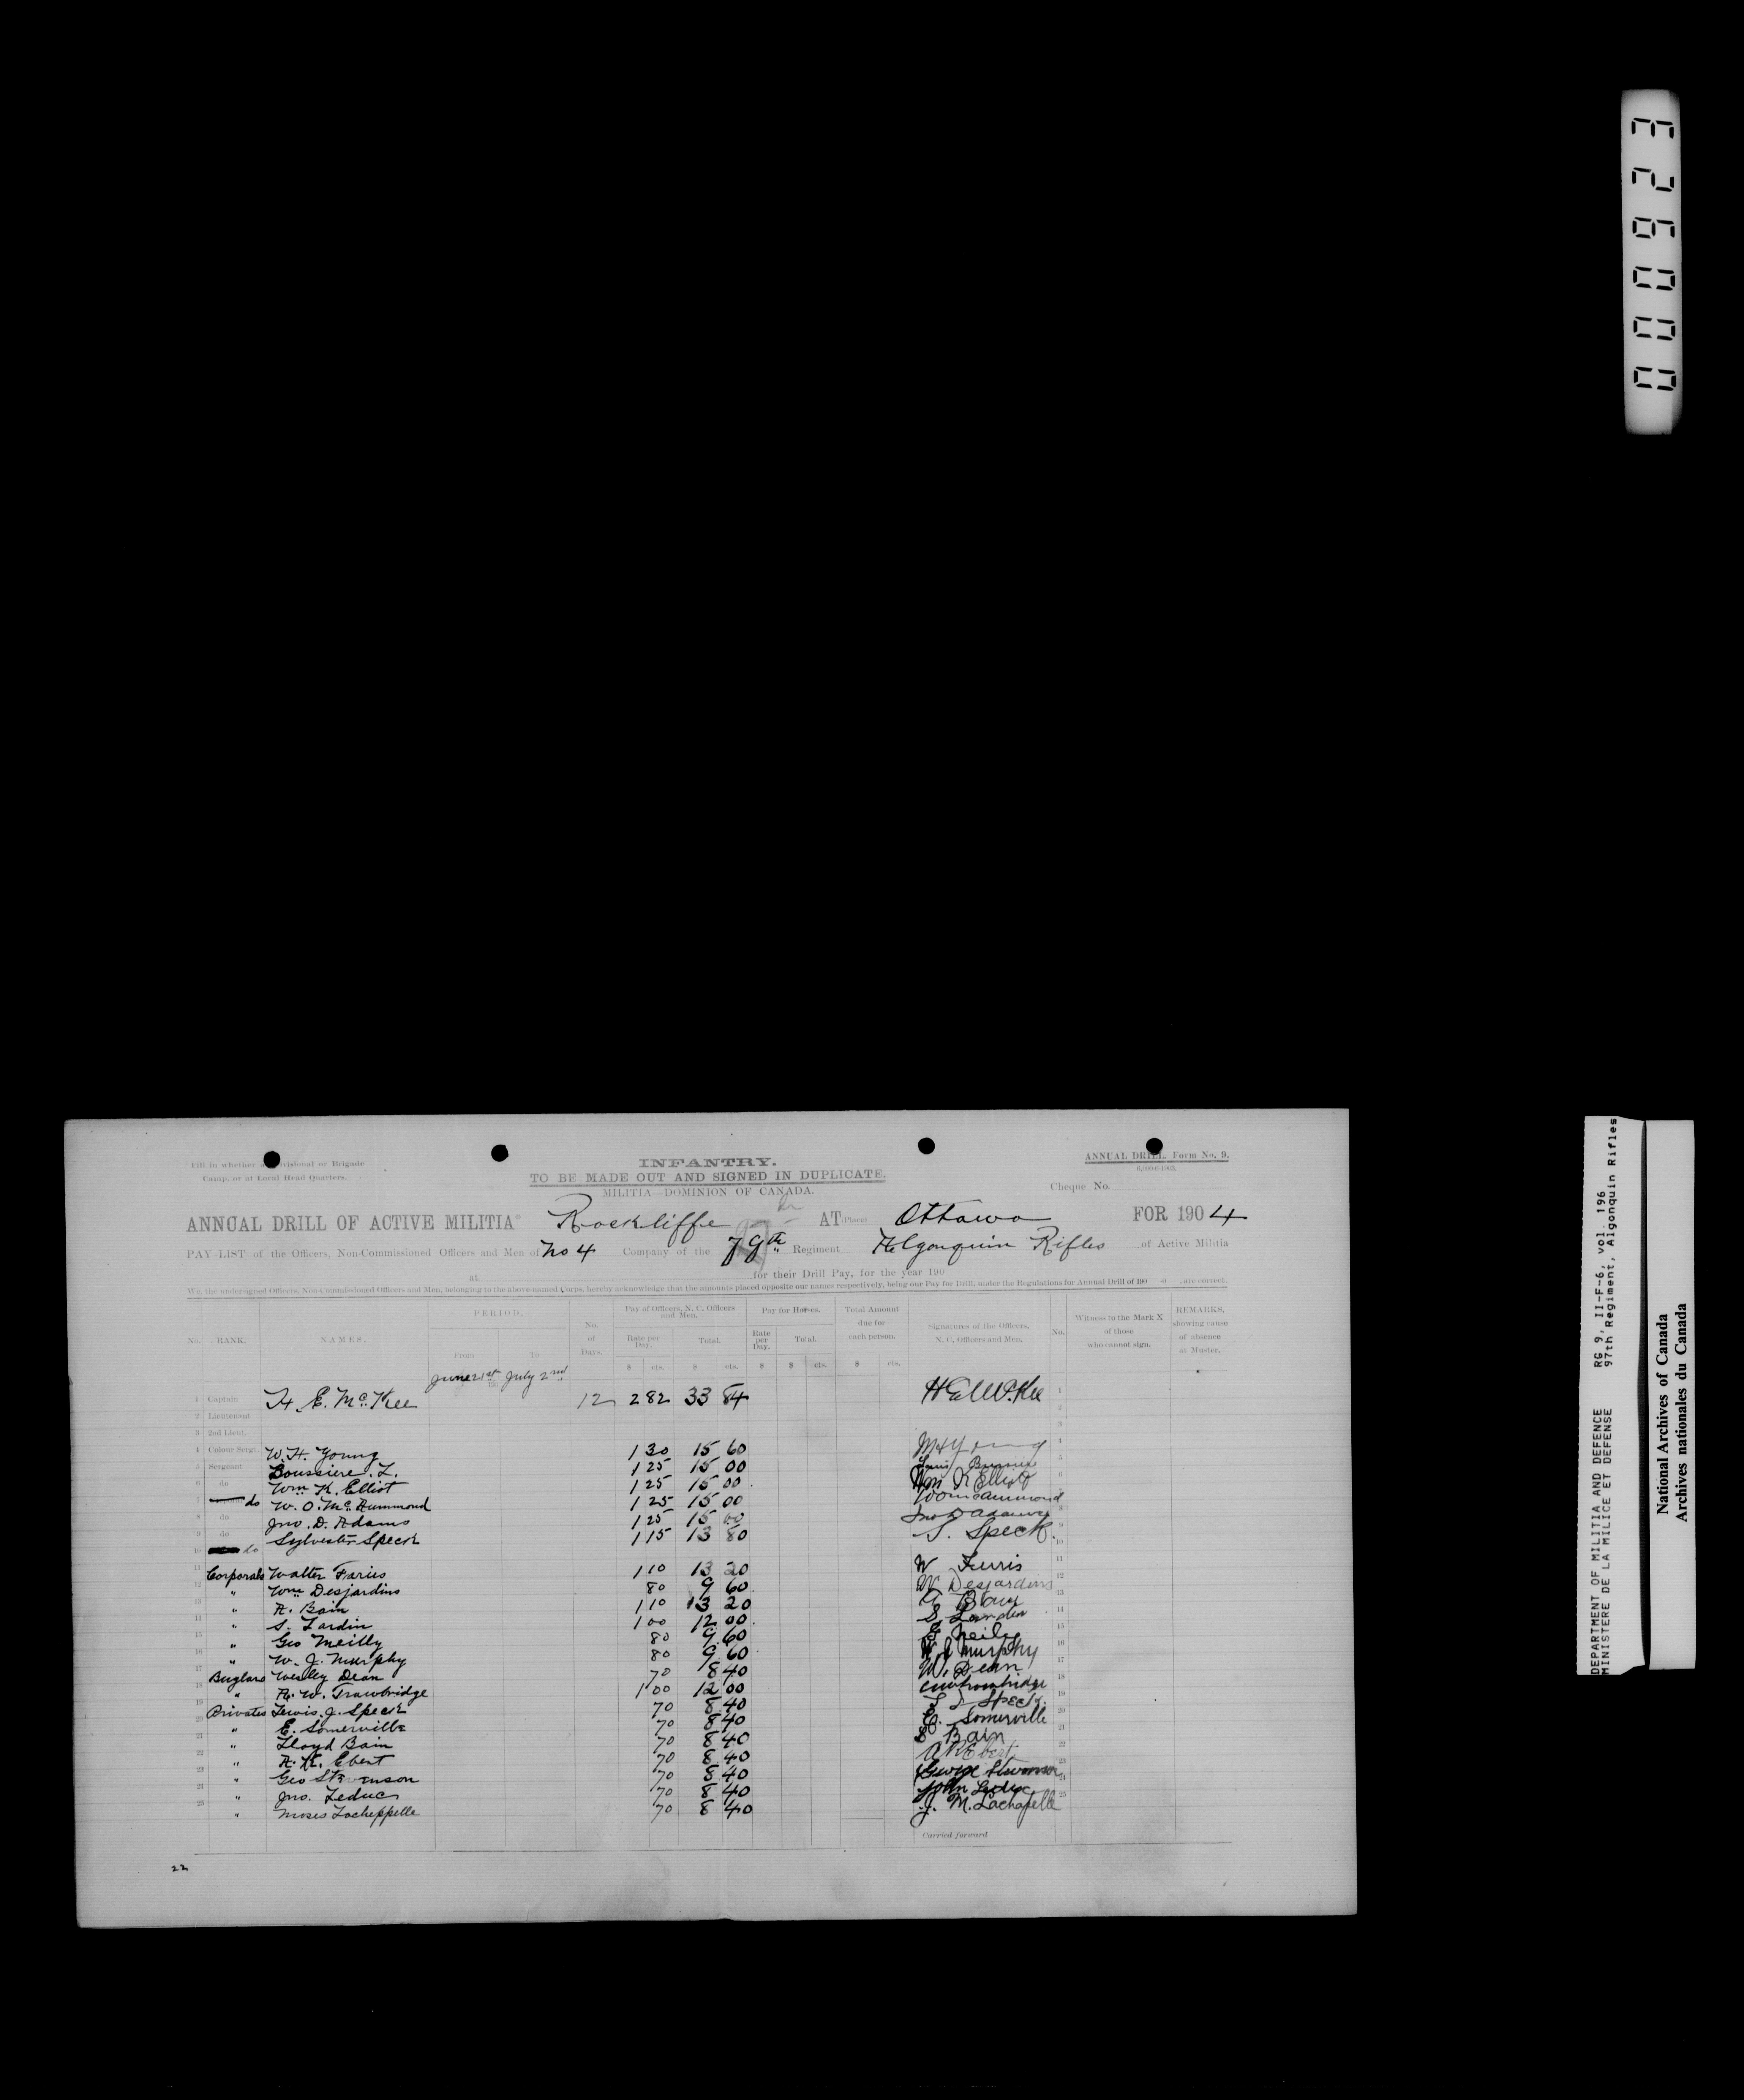 000923
DEPARTMENT OF MILITIA AND DEFENCE RG 9, II-F-6, vol. 196
MINISTERE DE LA MILICE ET DEFENSE 97th Regiment, Algonquin Rifles
National Archives of Canada
Archives nationales du Canada
Fill in whether Divisional or Brigade
Camp, or at Local Head Quarters.
INFANTRY.
TO BE MADE OUT AND SIGNED IN DUPLICATE.
MILITIA—DOMINION OF CANADA.
ANNUAL DRILL, Form No. 9.
Cheque No.
ANNUAL DRILL OF ACTIVE MILITIA Rockliffe AT (Place) Ottawa FOR 1904
PAY-LIST of the Officers, Non-Commissioned Officers and Men of No 4 Company of the 79th Regiment Algonquin Rifles of Active Militia
at for their Drill Pay, for the year 190
We, the undersigned Officers, Non-Commissioned Officers and Men, belonging to the above-named Corps, hereby acknowledge that the amounts placed opposite our names respectively, being our Pay for Drill, under the Regulations for Annual Drill of 190 , are correct.
No. RANK. NAMES. PERIOD. From To No. of Days. Pay of Officers, N. C. Officers and Men. Rate per Day. Total. Pay for Horses. Rate per Day. Total. Total Amount due for each person. Signatures of the Officers, N. C. Officers and Men. No. Witness to the Mark X of those who cannot sign. REMARKS, showing cause of absence at Muster.
$ cts. $ cts. $ $ cts. $ cts.
June 21st July 2nd
1 Captain H. E. McKee 12 2 82 33 84 H E McKee 1
2 Lieutenant 2
3 2nd Lieut. 3
4 Colour Sergt. W. H. Young 1 30 15 60 W H Young 4
5 Sergeant Boussiere. L. 1 25 15 00 Louis 5
6 do Wm K. Elliot 1 25 15 00 Wm K Elliot 6
7 do W. O. Mc Hummond 1 25 15 00
8 do Jno. D. Adams 1 25 15 00 Jno D Adams 8
9 do Sylvester Speck 1 15 13 80 S. Speck 9
10 do 10
11 Corporals Walter Faries 1 10 13 20 W Ferris 11
12 " Wm Desjardins 80 9 60 W Desjardins 12
13 " A. Bain 1 10 13 20 A Bain 13
14 " S. Lardin 1 00 12 00 S 14
15 " Geo Meilly 80 9 60 G Neily 15
16 " W. J. Murphy 80 9 60 W J Murphy 16
17 Buglars Weslley Dean 70 8 40 W. Dean 17
18 " A. W. Trowbridge 1 00 12 00 18
19 Privates Lewis. J. Speck 70 8 40 L J Speck 19
20 " E. Somerville 70 8 40 E. Somerville 20
21 " Lloyd Bain 70 8 40 Bain 21
22 " A. K. Ebert 70 8 40 A K Ebert 22
23 " Geo Stevenson 70 8 40 George Stevenson 23
24 " Jno. Leduc 70 8 40 John Leduc 24
25 " Moses Locheppelle 70 8 40 J. M. Lachapelle 25
Carried forward
22